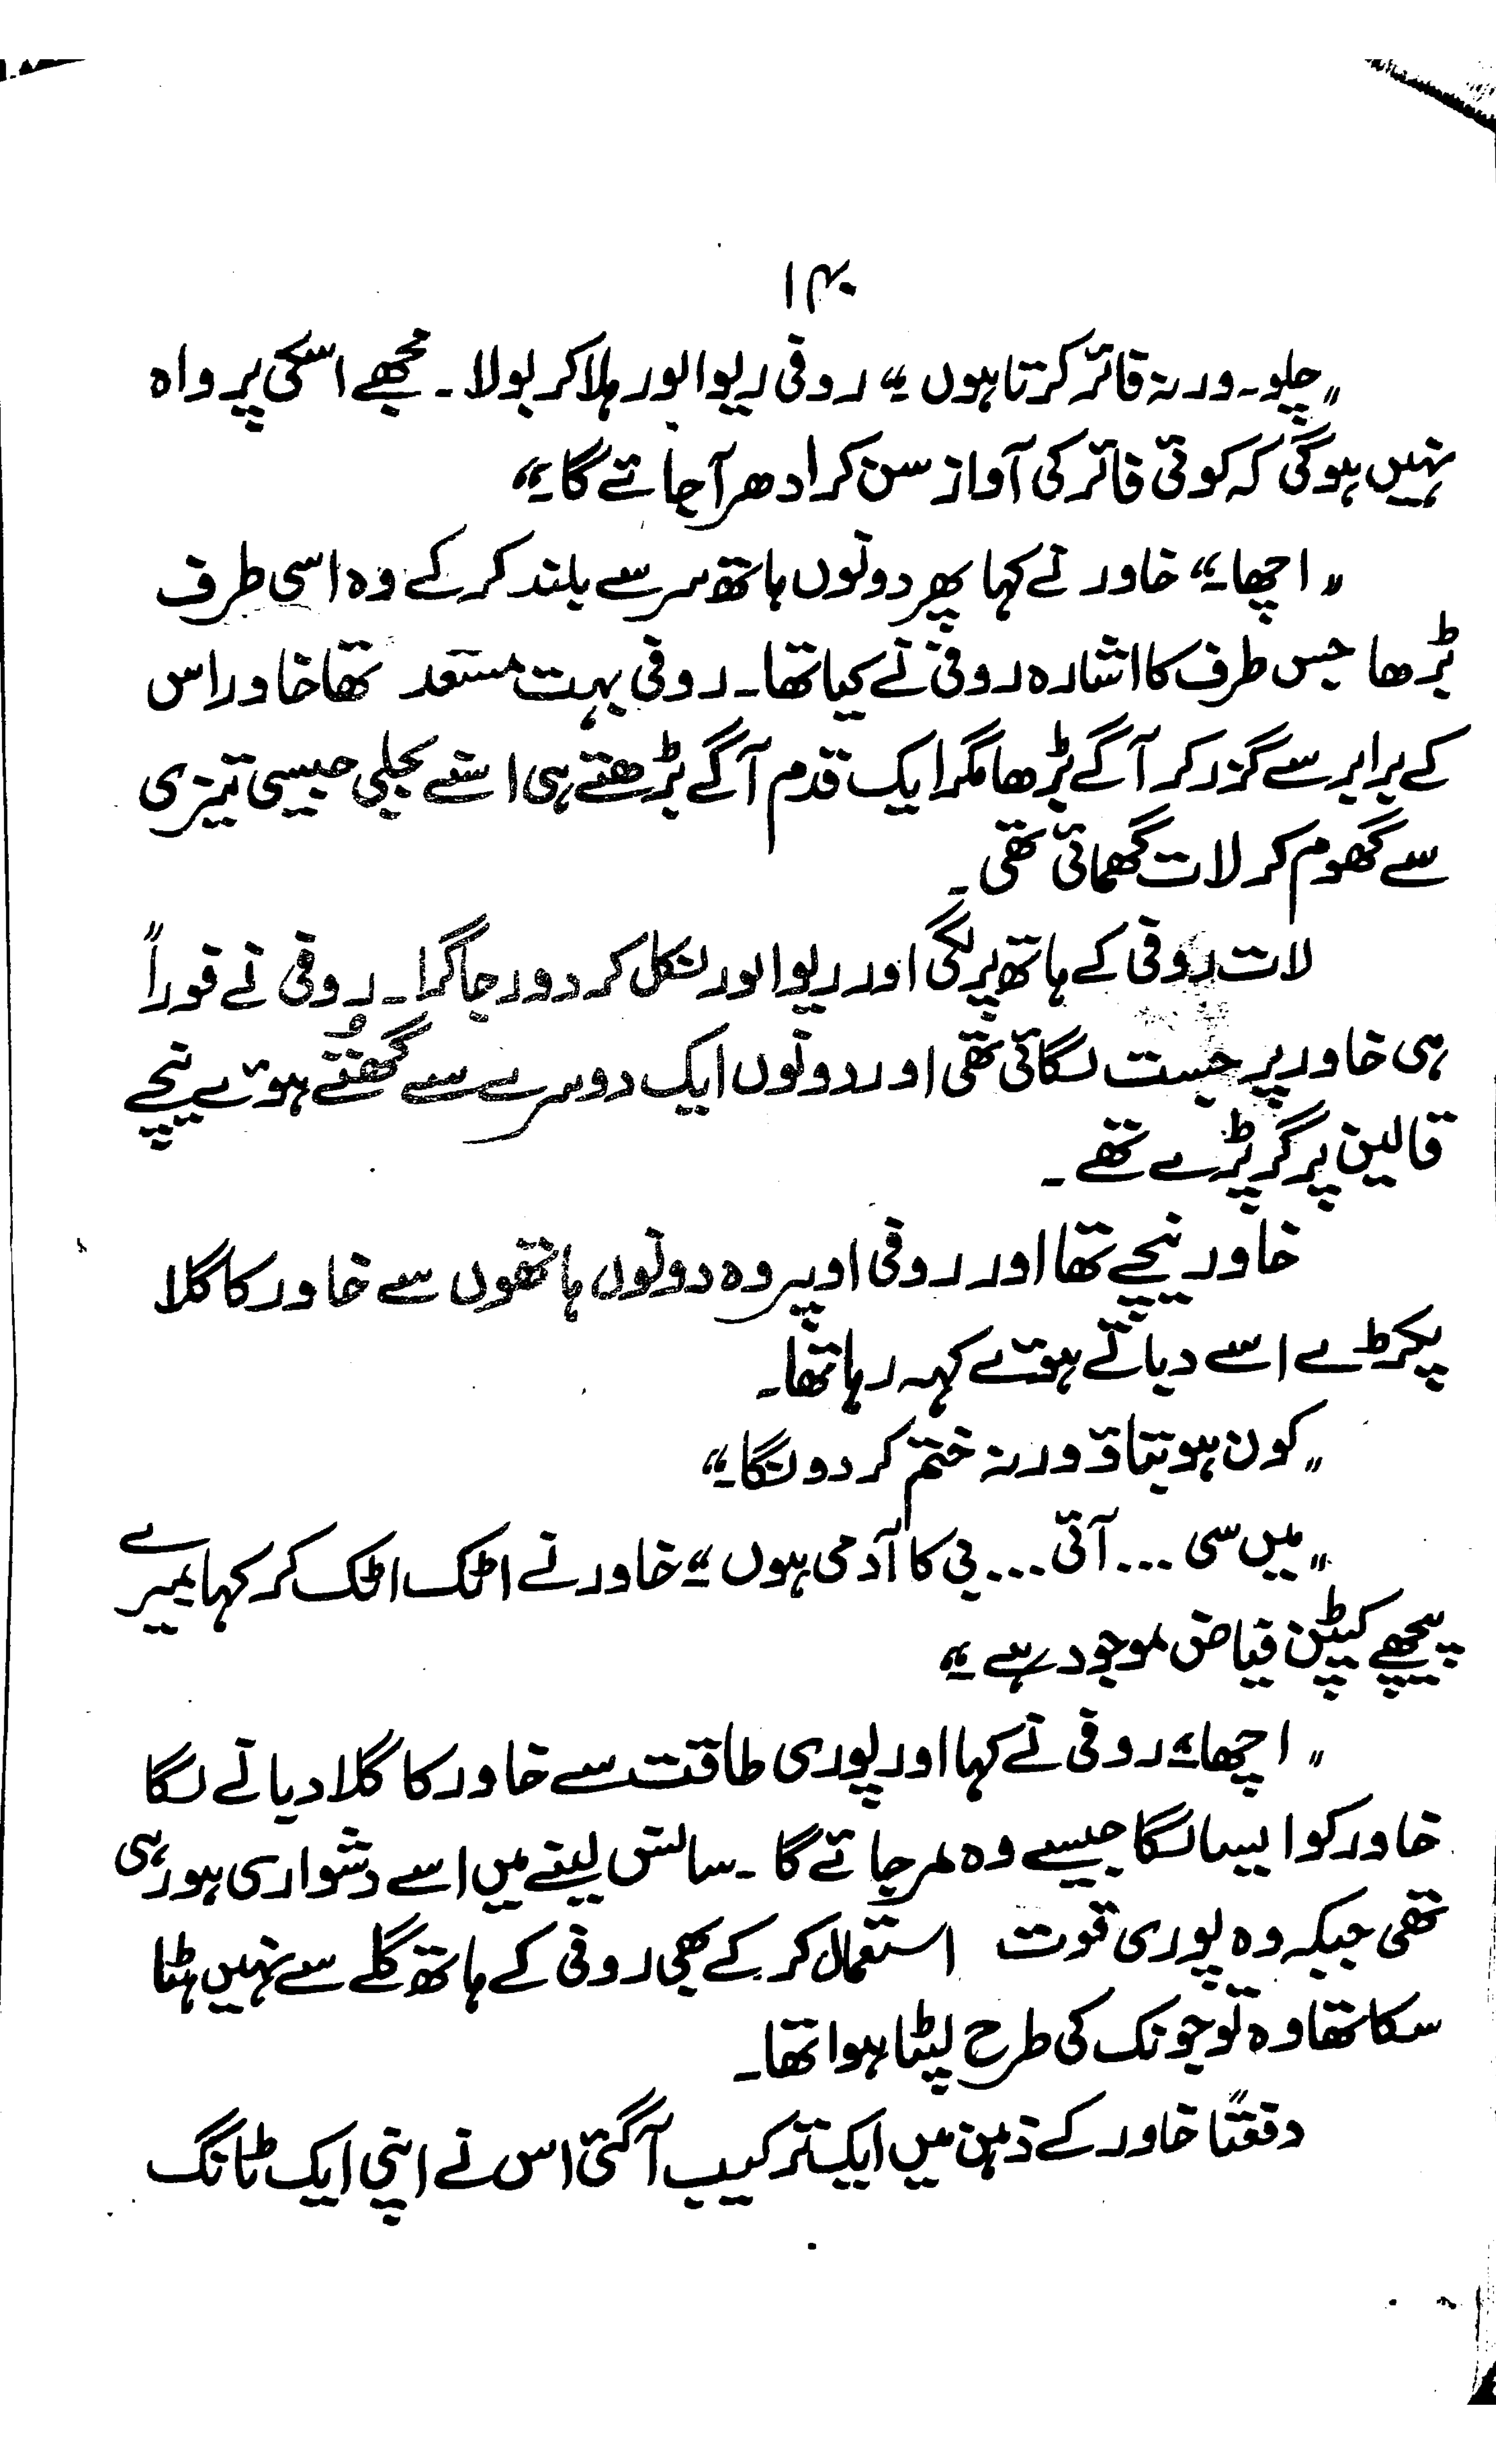 ۱۴۰
”چلو۔ ورنہ فائر کرتا ہوں۔“ روفی ریوالور ہلا کر بولا۔ مجھے اسکی پرواہ
نہیں ہوگی کہ کوئی فائر کی آواز سن کر ادھر آجائے گا۔“
”اچھا۔“ خاور نے کہا پھر دونوں ہاتھ سر سے بلند کر کے وہ اسی طرف
بڑھا جس طرف کا اشارہ روفی نے کیا تھا۔ روفی بہت مستعد تھا خاور اس
کے برابر سے گزر کر آگے بڑھا مگر ایک قدم آگے بڑھتے ہی اسنے بجلی جیسی تیزی
سے گھوم کر لات گھمائی تھی۔
لات روفی کے ہاتھ پر لگی اور ریوالور نکل کر دور جا گرا۔ روفی نے فوراً
ہی خاور پر جست لگائی تھی اور دونوں ایک دوسرے سے گُھتے ہوئے نیچے
قالین پر گر پڑے تھے۔
خاور نیچے تھا اور روفی اوپر وہ دونوں ہاتھوں سے خاور کا گلا
پکڑے اسے دباتے ہوئے کہہ رہا تھا۔
”کون ہو بتاؤ ورنہ ختم کر دونگا۔“
”میں سی ... آئی ... بی کا آدمی ہوں۔“ خاور نے اٹک اٹک کر کہا۔ میرے
پیچھے کیپٹن فیاض موجود ہے۔“
”اچھا۔“ روفی نے کہا اور پوری طاقت سے خاور کا گلا دبانے لگا
خاور کو ایسا لگا جیسے وہ مر جائے گا۔ سانس لینے میں اسے دشواری ہو رہی
تھی جبکہ وہ پوری قوت استعمال کر کے بھی روفی کے ہاتھ گلے سے نہیں ہٹا
سکا تھا وہ تو جونک کی طرح لپٹا ہوا تھا۔
دفعتاً خاور کے ذہن میں ایک ترکیب آگئی اس نے اپنی ایک ٹانگ